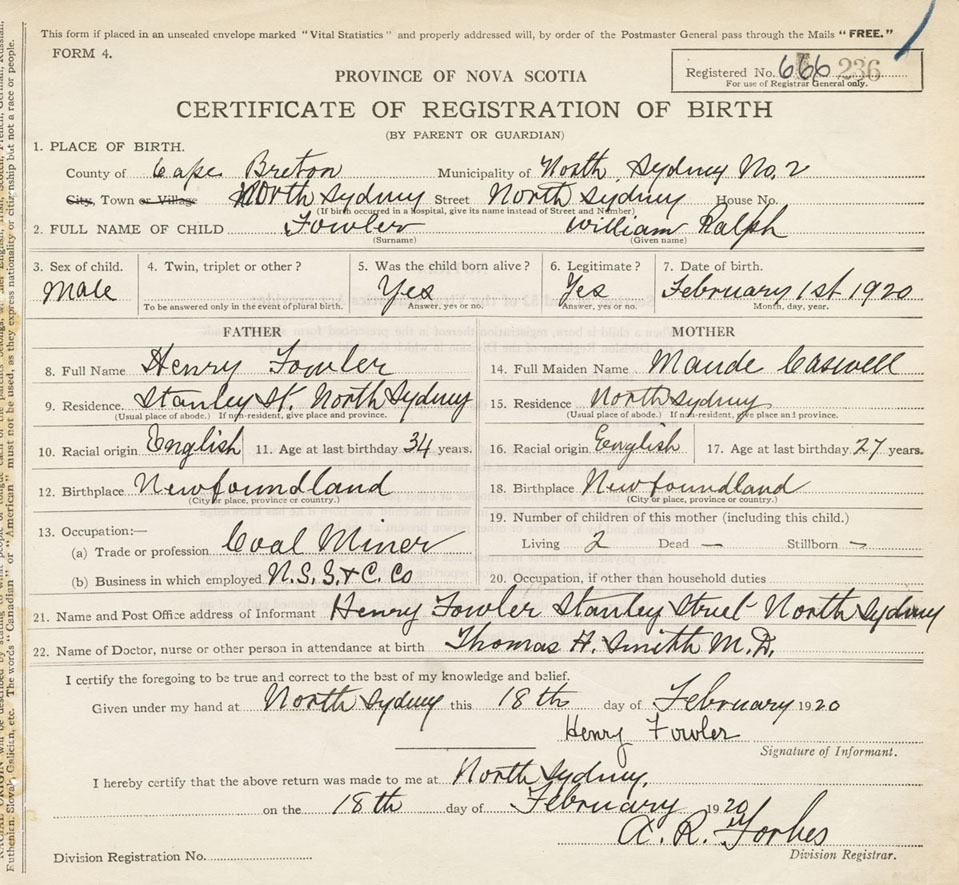 This form if placed in an unsealed envelope marked "Vital Statistics" and properly addressed will, by order of the Postmaster General pass through the Mails "FREE."
FORM 4.
Registered No. 666 236
For use of Registrar General only.
PROVINCE OF NOVA SCOTIA
CERTIFICATE OF REGISTRATION OF BIRTH
(BY PARENT OR GUARDIAN)
1. PLACE OF BIRTH.
County of Cape Breton Municipality of North Sydney No. 2
City, Town or Village North Sydney Street North Sydney House No.
(If birth occurred in a hospital, give its name instead of Street and Number)
2. FULL NAME OF CHILD Fowler William Ralph
(Surname) (Given name)
3. Sex of child. 4. Twin, triplet or other? 5. Was the child born alive? 6. Legitimate? 7. Date of birth.
Male Yes Yes February 1st 1920
To be answered only in the event of plural birth. Answer, yes or no. Answer, yes or no. Month, day, year.
FATHER MOTHER
8. Full Name Henry Fowler 14. Full Maiden Name Maude Caswell
9. Residence. Stanley St. North Sydney 15. Residence North Sydney
(Usual place of abode.) If non-resident, give place and province. (Usual place of abode.) If non-resident, give place and province.
10. Racial origin English 11. Age at last birthday 34 years. 16. Racial origin English 17. Age at last birthday 27 years.
12. Birthplace Newfoundland 18. Birthplace Newfoundland
(City or place, province or country.) (City or place, province or country.)
13. Occupation:— 19. Number of children of this mother (including this child.)
(a) Trade or profession Coal Miner Living 2 Dead — Stillborn —
(b) Business in which employed N.S.S. & C. Co 20. Occupation, if other than household duties
21. Name and Post Office address of Informant Henry Fowler Stanley Street North Sydney
22. Name of Doctor, nurse or other person in attendance at birth Thomas H. Smith M.D.
I certify the foregoing to be true and correct to the best of my knowledge and belief.
Given under my hand at North Sydney this 18th day of February 1920
Henry Fowler
Signature of Informant.
I hereby certify that the above return was made to me at North Sydney,
on the 18th day of February 1920
A. R. Forbes
Division Registrar.
Division Registration No.